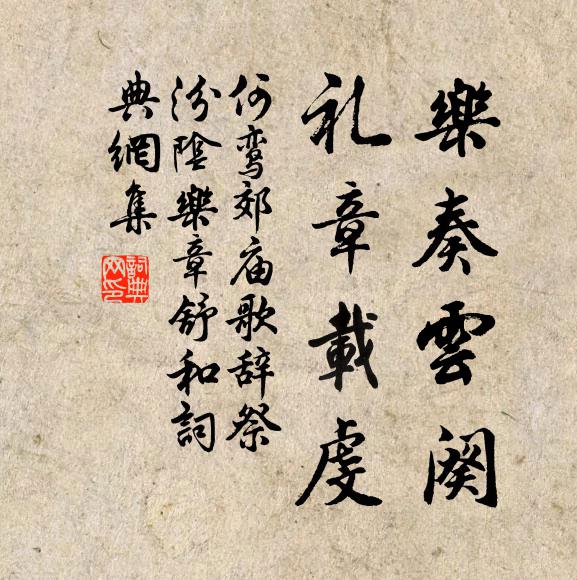 樂奏雲闋
礼章載虔
何鸾郊庙歌辞祭
汾陰樂章舒和詞
典網集
詞典网印